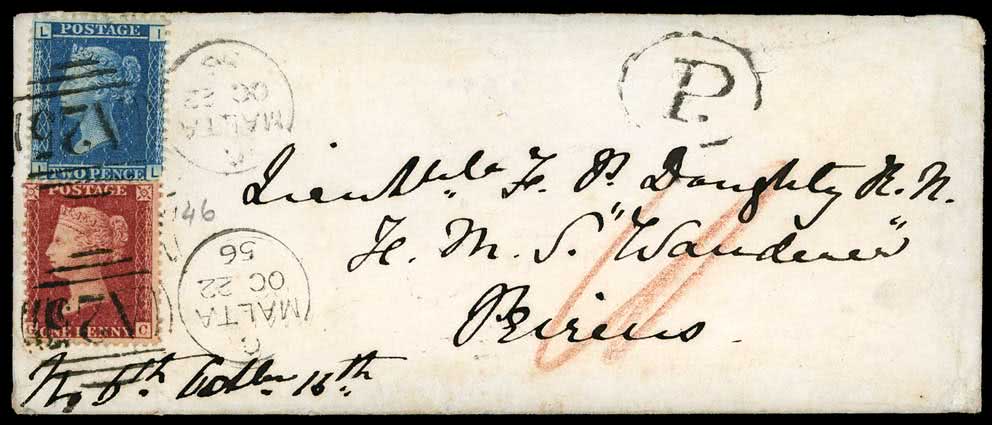 L I
POSTAGE
TWO PENCE
L L
POSTAGE
G ONE PENNY G
MALTA
OC 22
56
C
MALTA
OC 22
56
C
P.
146
F. P. Doughty R.N.
H. M. S. "Wanderer"
Peireus
No 6th Octbr 16th